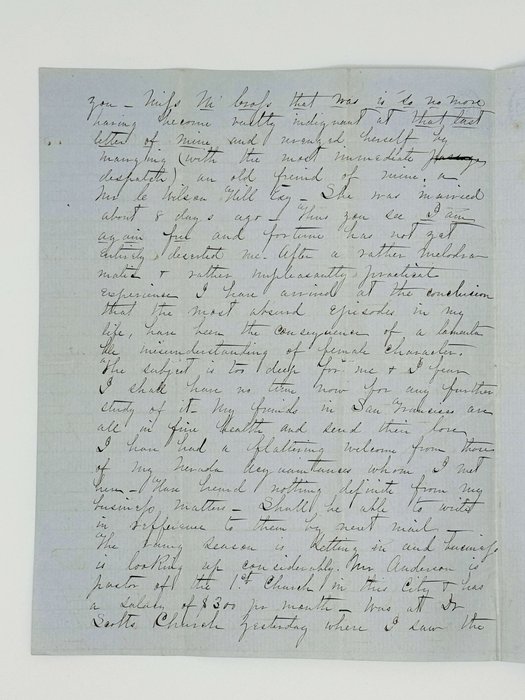 you — Miss McCross that was is so no more
having become vastly indignant at that last
letter of mine and revenged herself by
marrying (with the most immediate
despatch) an old friend of mine, a
Mr C Wilson Hill Esq — She was married
about 8 days ago — Thus you see I am
again free and fortune has not yet
entirely deserted me. After a rather melodra-
matic & rather unpleasantly practical
experience I have arrived at the conclusion
that the most absurd episodes in my
life, have been the consequence of a lamenta-
ble misunderstanding of female character.
The subject is too deep for me & I fear
I shall have no time now for any further
study of it — My friends in San Francisco are
all in fine health and send their love
I have had a flattering welcome from those
of my Nevada acquaintances whom I met
here — Have heard nothing definite from my
business matters — Shall be able to write
in refference to them by next mail —
The rainy season is setting in and business
is looking up considerably. Mr Anderson is
pastor of the 1st Church in this City & has
a salary of $300 pr month — Was at Dr
Scotts Church yesterday where I saw the